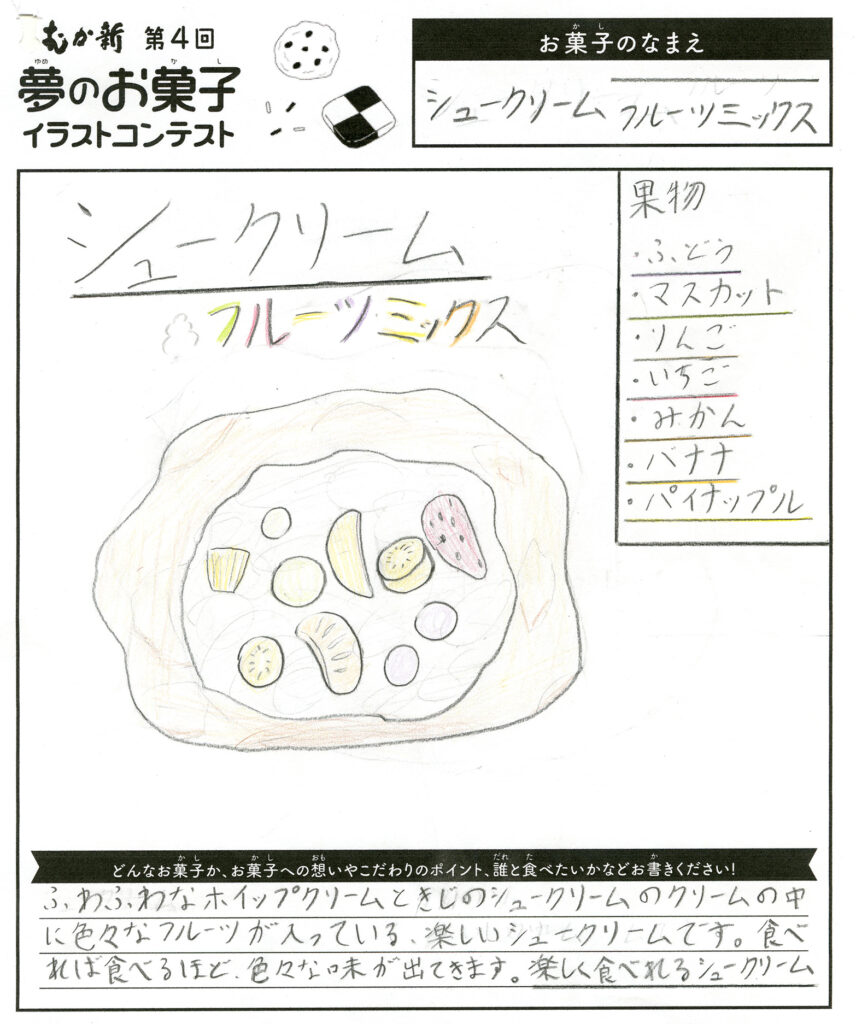 むか新 第4回
夢のお菓子
ゆめ かし
イラストコンテスト
お菓子のなまえ
かし
シュークリーム フルーツミックス
シュークリーム
フルーツミックス
果物
・ぶどう
・マスカット
・りんご
・いちご
・みかん
・バナナ
・パイナップル
どんなお菓子か、お菓子への想いやこだわりのポイント、誰と食べたいかなどお書きください!
かし かし おも だれ た か
ふわふわなホイップクリームときじのシュークリームのクリームの中
に色々なフルーツが入っている、楽しいシュークリームです。食べ
れば食べるほど、色々な味が出てきます。楽しく食べれるシュークリーム